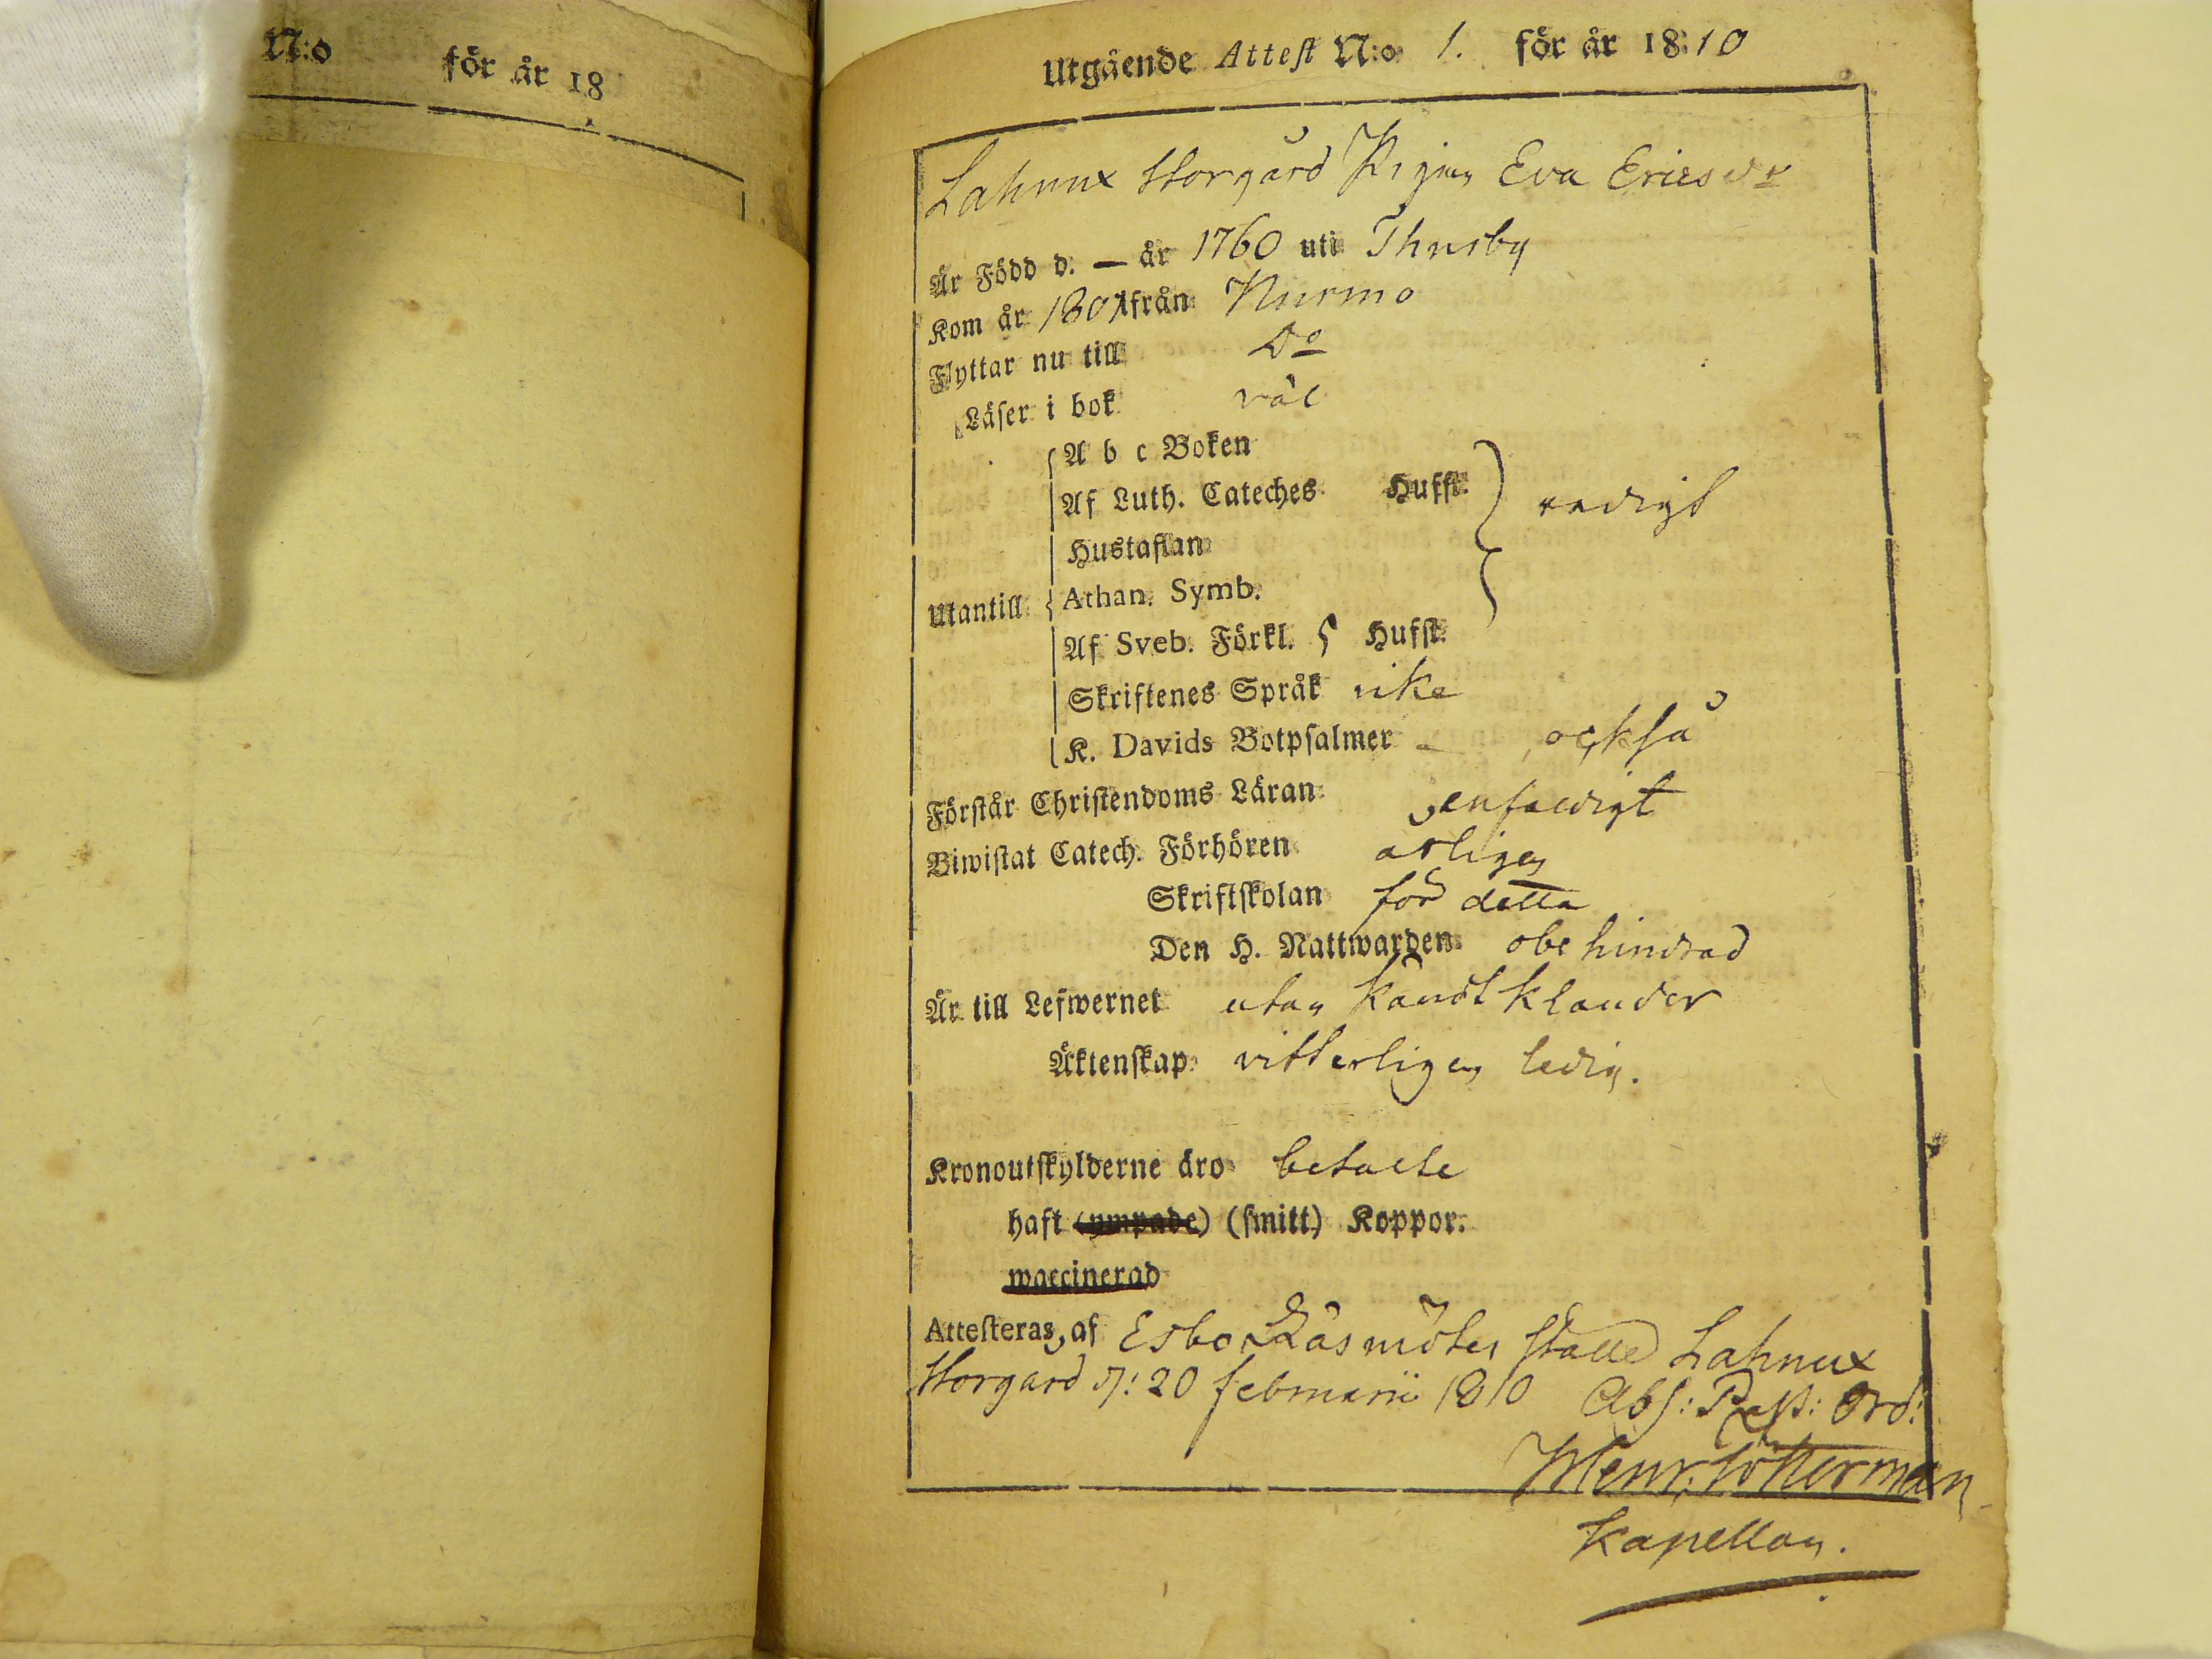 N:o för år 18
Utgående Attest N:o 1. för år 18:10
Lahnux Storgård Pigan Eva Ericsdr
Är Född d. — år 1760 uti Thusby
Kom år 1801 från Nurmo
Flyttar nu till Do
Läser i bok väl
A b c Boken
Af Luth. Cateches Hufst. redigt
Hustaflan
Utantill Athan. Symb.
Af Sveb. Förkl. 5 Hufst.
Skriftenes Språk like
K. Davids Botpsalmer - också
Förstår Christendoms Läran enfaldigt
Biwistat Catech. Förhören årligen
Skriftskolan för detta
Den H. Nattwarden obehindrad
Är till Lefwernet utan kändt klander
Äktenskap vitterligen ledig.
Kronoutskylderne äro betalte
haft (ympade) (smitt) Koppor.
waccinerad
Attesteras, af Esbo Läsmötes ställe Lahnux
Storgård d: 20 februarii 1810 Abs: Past: Ord:
Henr:
Kapellan.